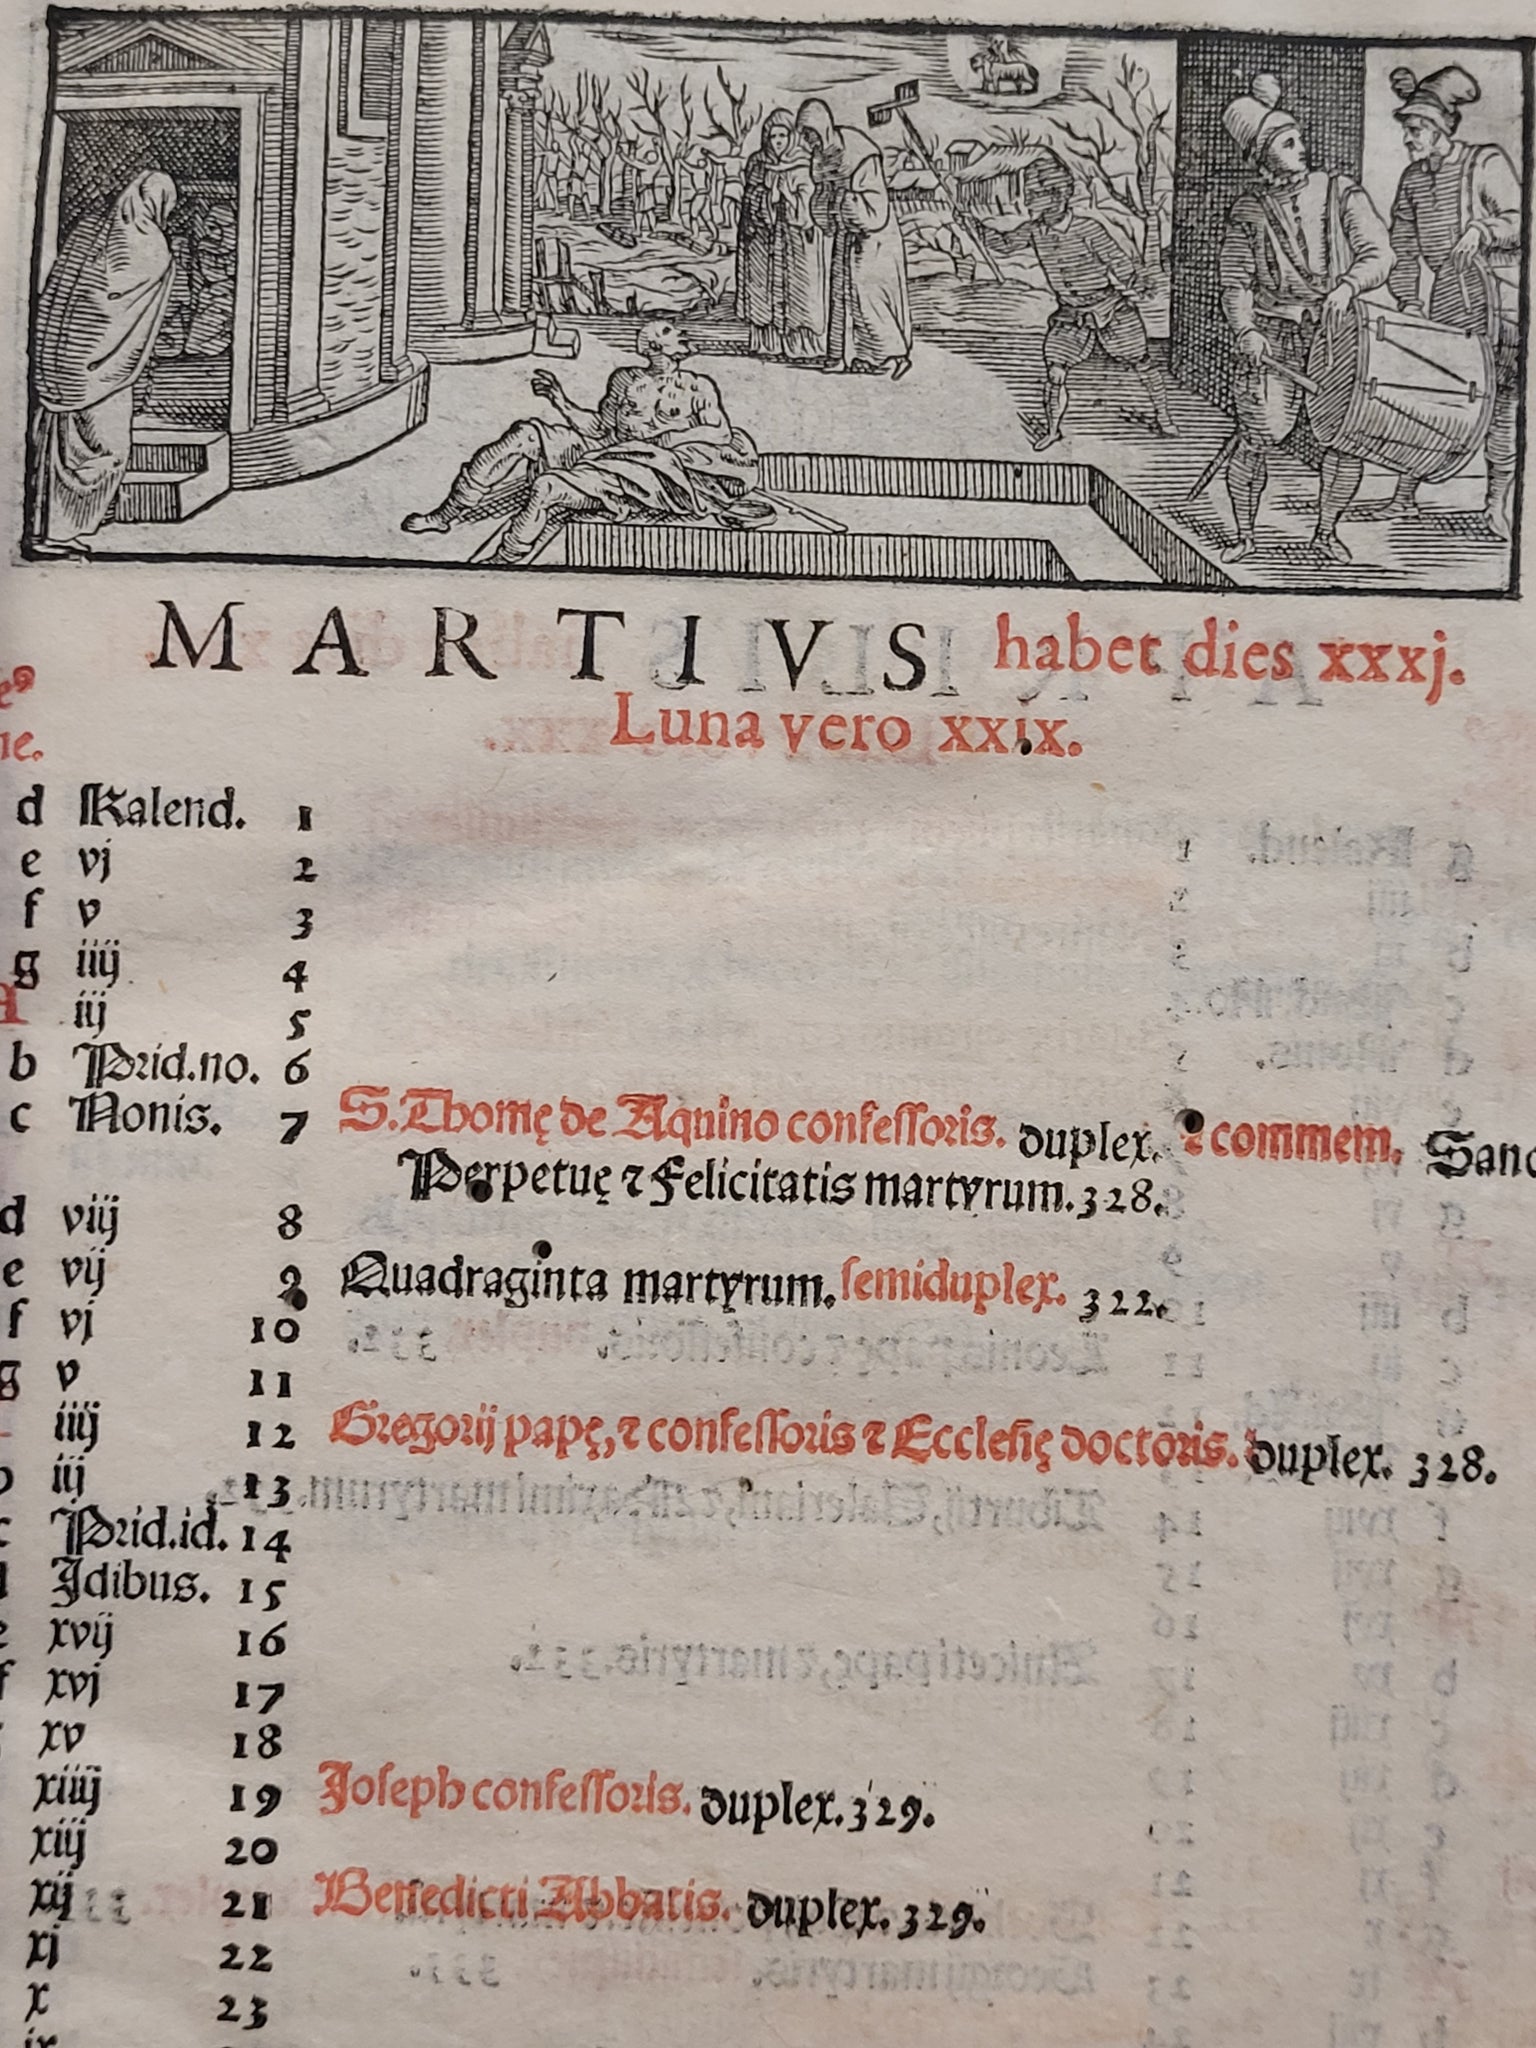 MARTIVS habet dies xxxj.
Luna vero xxix.
d Kalend. 1
e vj 2
f v 3
g iiij 4
A iij 5
b Prid.no. 6
c Nonis. 7 S.Thomę de Aquino confessoris. duplex. ⁊ commem. Sanc
Perpetuę ⁊ Felicitatis martyrum.328.
d viij 8
e vij 9 Quadraginta martyrum. semiduplex. 322.
f vj 10
g v 11
iiij 12 Gregorij papę, ⁊ confessoris ⁊ Ecclesię doctoris. duplex. 328.
b iij 13
c Prid.id. 14
d Idibus. 15
e xvij 16
f xvj 17
xv 18
xiiij 19 Joseph confessoris. duplex.329.
xiij 20
xij 21 Benedicti Abbatis. duplex. 329.
xj 22
x 23
ix